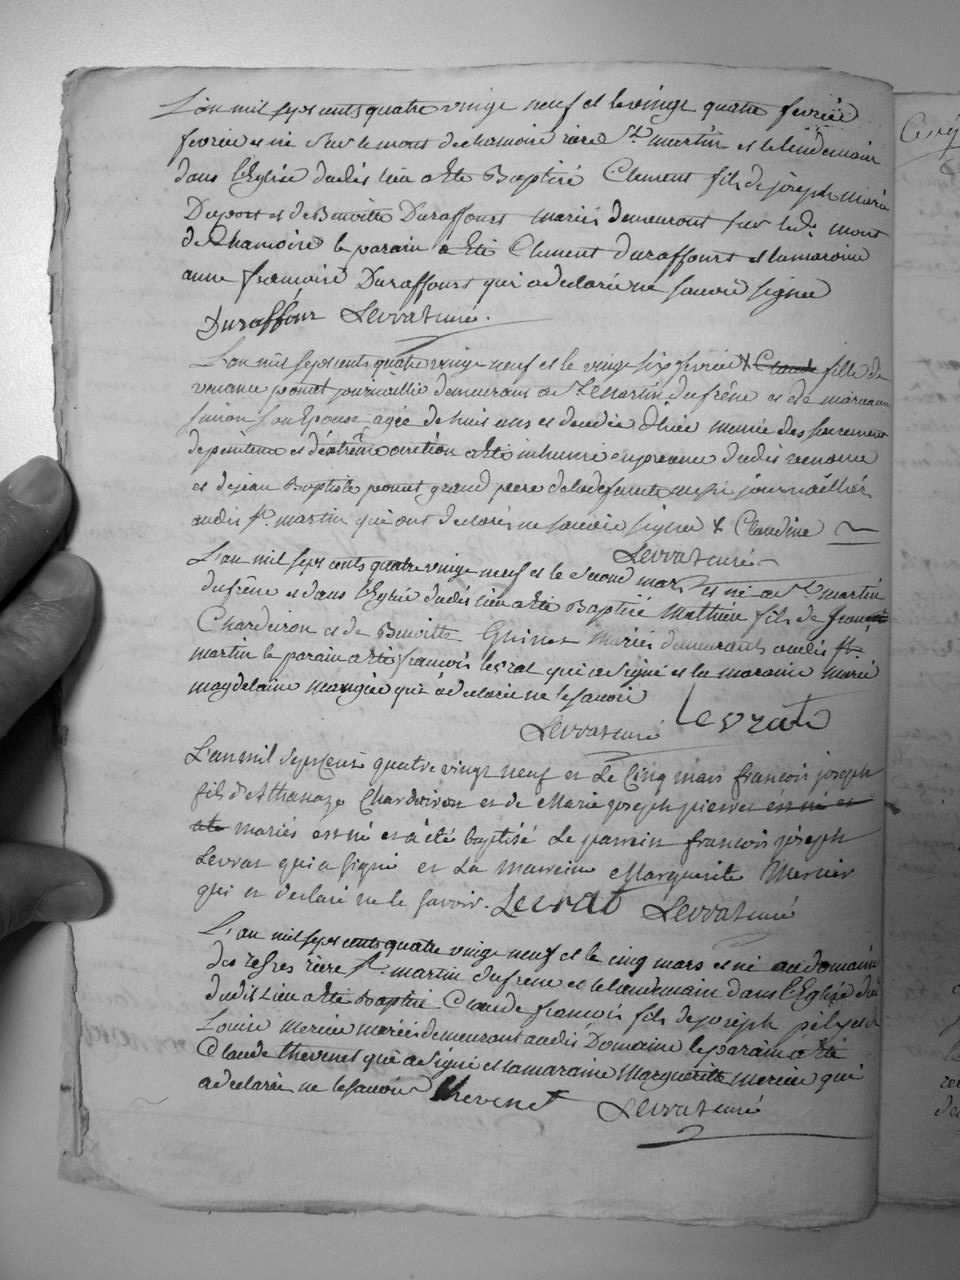 L'an mil sept cents quatre vingt neuf et le vingt quatre fevrier
fevrier est né sur le mont de chamoire riere St martin et le lendemain
dans l'Eglise dudit lieu a été Baptisé Clement fils de joseph marie
Duport et de Benoitte Duraffourt mariés demeurant sur ledt mont
de Chamoire le parain a été Clement Duraffourt et la maraine
anne francoise Duraffourt qui a declaré ne savoir signer
Duraffour Levrat curé.
L'an mil sept cents quatre vingt neuf et le vingt six fevrier & Claude fille de
venance poncet journallier demeurant a St martin du frêne et de
simon son Epouse agée de huit ans et decedée d'hier munie des sacrements
de penitence et d'extrême onction a été inhumée en presence dudit venance
et de jean Baptiste poncet grand pere de la defunte journailliers
audit St martin qui ont declarés ne savoir signer & Claudine
Levrat curé
L'an mil sept cents quatre vingt neuf et le second mars est né a St martin
du frêne et dans l'Eglise dudit lieu a été Baptisé Mathieu fils de jean
Chardeiron et de Benoitte Guinet mariés demeurants audit St
martin le parain a été francois levrat qui a signé et la maraine marie
magdelaine mangier qui a declaré ne le savoir
Levrat curé Levrat
L'an mil sept cent quatre vingt neuf et le cinq mars francois joseph
fils d'Athanaze Chardeiron et de Marie joseph pierret est né et
a été mariés est né et a été baptisé le parrain francois joseph
Levrat qui a signé et la marreine Marguerite Mercier
qui a declaré ne le savoir. Levrat Levrat curé
L'an mil sept cents quatre vingt neuf et le cinq mars est né au domaine
des riere St martin du frene et le lendemain dans l'Eglise du
dudit Lieu a été Baptisé Claude francois fils de joseph et de
Louise mercier mariés demeurant audit Domaine le parain a été
Claude thevenet qui a signé et la maraine Marguerite mercier qui
a declaré ne le savoir thevenet Levrat curé